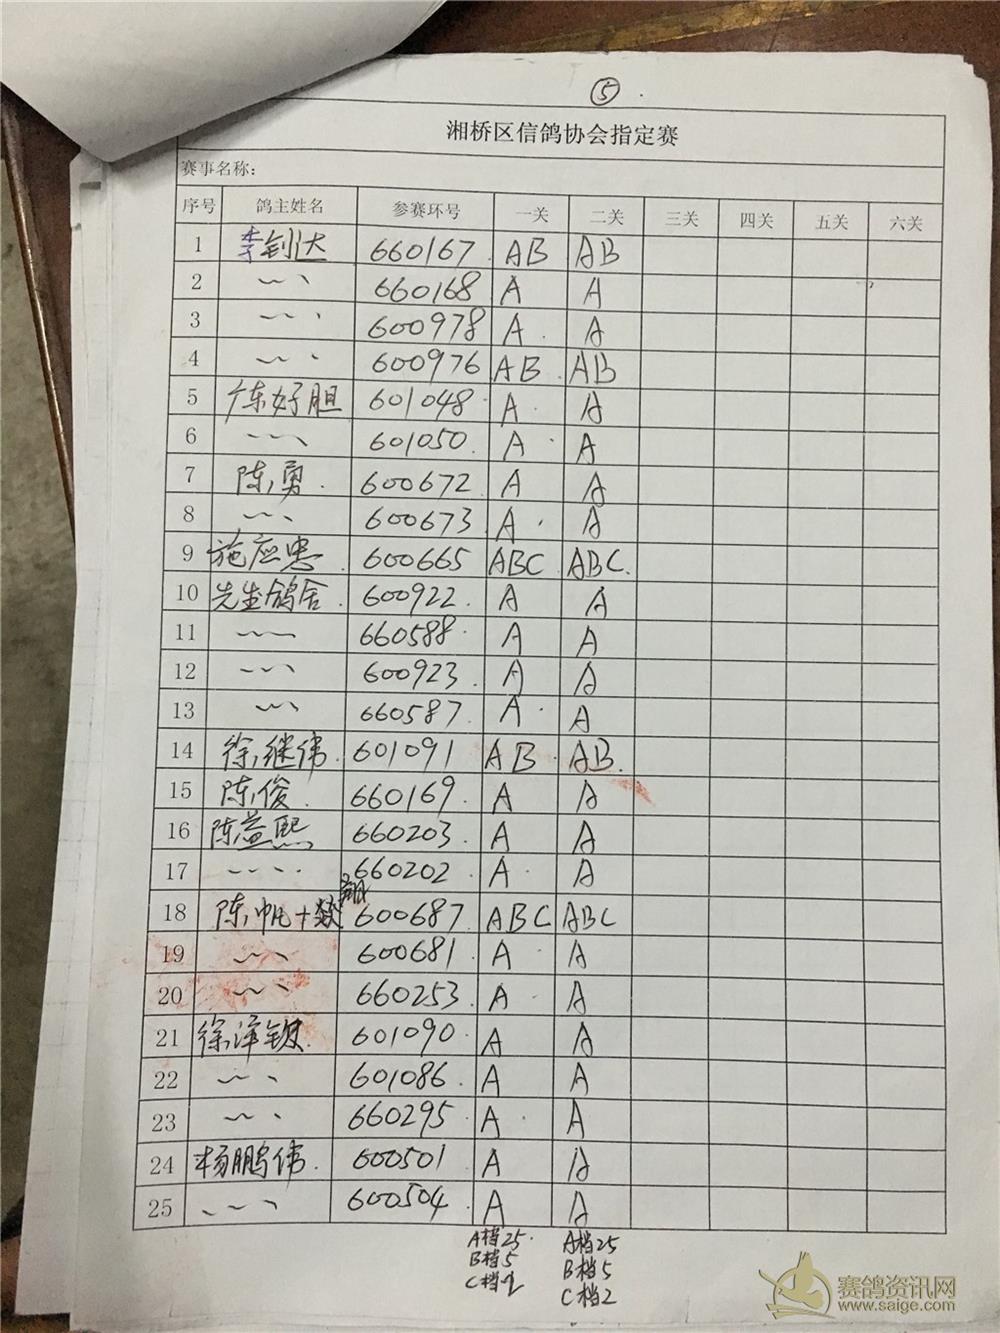 ⑤
湘桥区信鸽协会指定赛
赛事名称:
序号 鸽主姓名 参赛环号 一关 二关 三关 四关 五关 六关
1 李钊达 660167 AB AB
2 〃 660168 A A
3 〃 600978 A A
4 〃 600976 AB AB
5 好胆 601048 A A
6 〃 601050 A A
7 陈勇 600672 A A
8 〃 600673 A A
9 施应忠 600665 ABC ABC
10 先生鸽舍 600922 A A
11 〃 660588 A A
12 〃 600923 A A
13 〃 660587 A A
14 徐继伟 601091 AB AB
15 陈俊 660169 A A
16 陈益熙 660203 A A
17 〃 660202 A A
18 陈帆+ 600687 ABC ABC
19 〃 600681 A A
20 〃 660253 A A
21 徐泽 601090 A A
22 〃 601086 A A
23 〃 660295 A A
24 杨鹏伟 600501 A A
25 〃 600504 A A
A档25 A档25
B档5 B档5
C档2 C档2
赛鸽资讯网
www.saige.com